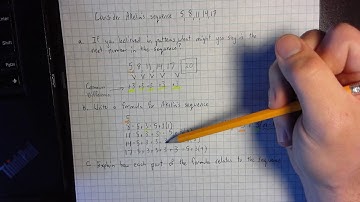 Consider Athelia's sequence 5, 8, 11, 14, 17
a. If you believed in patterns what might you say is the
next number in the sequence?
5, 8, 11, 14, 17, 20
Common
Difference
b. Write a formula for Athelia's sequence
5
8 = 5 + 3 = 5 + 3(1)
11 = 5 + 3 + 3
14 = 5 + 3 + 3 +
17 = 5 + 3 + 3 + 3 + 3 = 5 + 3(4)
c. Explain how each part of the formula relates to the sequence